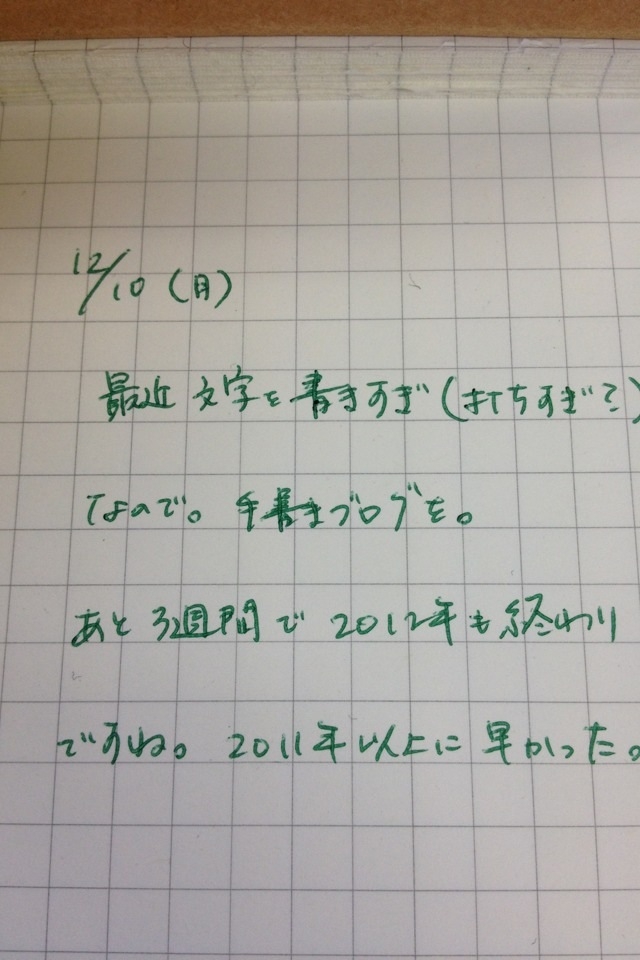 12/10（月）
最近 文字を書きすぎ（打ちすぎ？）
なので。手書きブログを。
あと3週間で 2012年も終わり
ですね。2011年以上に早かった。